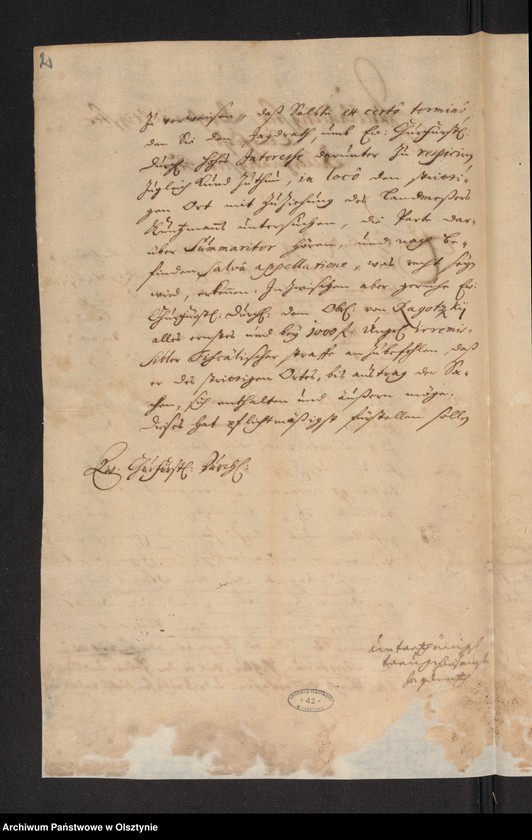 zu verweisen, daß Selbte ex certô terminô,
den Sie dem Jagdrath, umb Ew: Churfürstl:
Durchl: hohes Interesse darunter zu respiciren,
zugleich kund zuthun, in locô den stritti-
gen Ort mit Zuziehung des Landmeßers
untersuchen, die Parte dar-
über Summariter hören, und nach be-
finden, salvâ appellatione, was recht seyn
wird, erkennen: Inzwischen aber geruhe Ew:
Churfürstl: Durchl: dem Obl: von Ragotzky
alles ernstes und bey 1000 f. Ungr: irremis-
sibler Fiscalischer straffe anzubefehlen, daß
er des strittigen Ortes, bis austrag der Sa-
chen, sich enthalten und äußern möge.
Dieses hat pflichtmäßigst fürstellen sollen
Ew. Churfürstl: Durchl:
unterthänigst
treugehorsambste
42
Archiwum Państwowe w Olsztynie